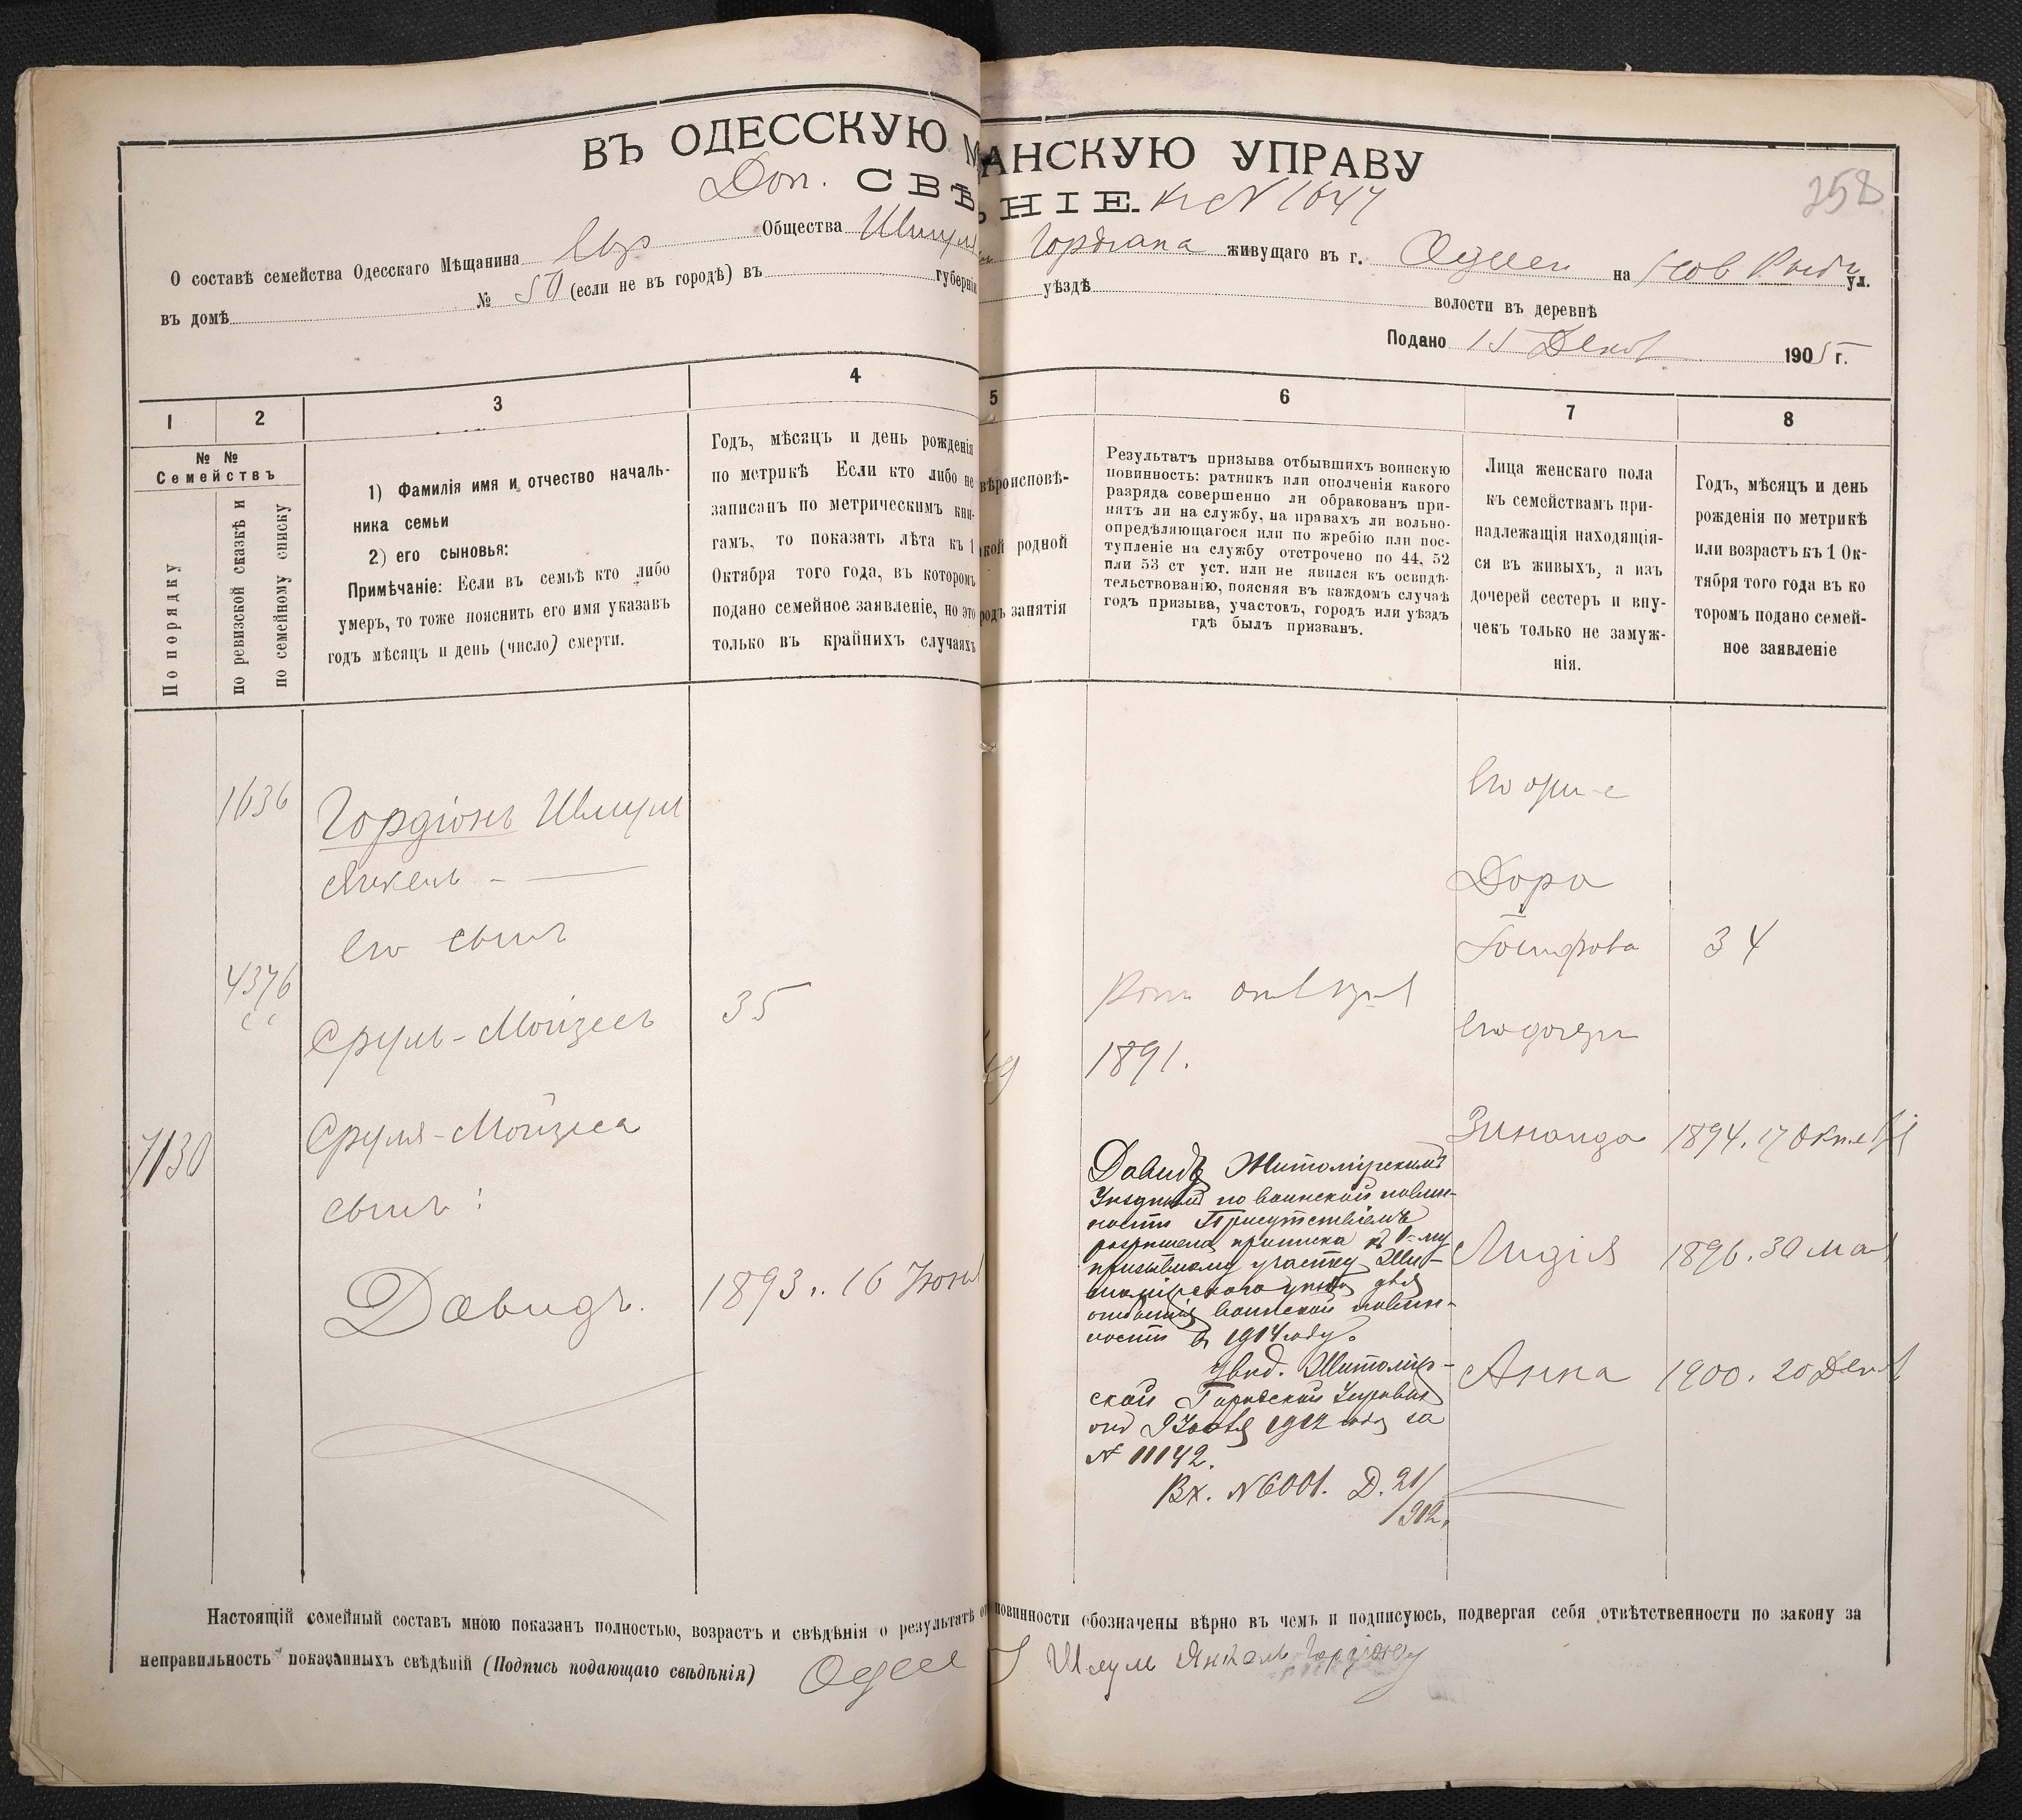 ВЪ ОДЕССКУЮ М АНСКУЮ УПРАВУ
Доп. СВѢ НІЕ. к № 1647
258
О составѣ семейства Одесскаго Мѣщанина Евр Общества Шмуля Гордіона живущаго въ г. Одессѣ на Нов Рыбн ул.
въ домѣ № 50 (если не въ городѣ) въ губерніи уѣздѣ волости въ деревнѣ
Подано 15 Декаб 1905 г.
1 2 3 4 5 6 7 8
№ №
Семействъ
По порядку
по ревизской сказкѣ и
по семейному списку
1) Фамилія имя и отчество началь-
ника семьи
2) его сыновья:
Примѣчаніе: Если въ семьѣ кто либо
умеръ, то тоже пояснить его имя указавъ
годъ мѣсяцъ и день (число) смерти.
Годъ, мѣсяцъ и день рожденія
по метрикѣ Если кто либо не
записанъ по метрическимъ кни-
гамъ, то показать лѣта къ 1
Октября того года, въ которомъ
подано семейное заявленіе, но это
только въ крайнихъ случаяхъ
вѣроисповѣ-
акой родной
родъ занятія
Результатъ призыва отбывшихъ воинскую
повинность: ратникъ или ополченія какого
разряда совершенно ли обракованъ при-
нятъ ли на службу, на правахъ ли вольно-
опредѣляющагося или по жребію или пос-
тупленіе на службу отстрочено по 44, 52
или 53 ст уст. или не явился къ освидѣ-
тельствованію, поясняя въ каждомъ случаѣ
годъ призыва, участокъ, городъ или уѣздъ
гдѣ былъ призванъ.
Лица женскаго пола
къ семействамъ при-
надлежащія находящія-
ся въ живыхъ, а изъ
дочерей сестеръ и вну-
чекъ только не замуж-
нія.
Годъ, мѣсяцъ и день
рожденія по метрикѣ
или возрастъ къ 1 Ок-
тября того года въ ко
торомъ подано семей-
ное заявленіе
1636
Гордіонъ Шмуль
Янкель
его сынъ
4376
Сруль-Мойзесъ 35
1891.
7130
Сруля-Мойзеса
сынъ:
Давидъ. 1893. 16 Іюня
Давидъ Житомірскимъ
Уѣзднымъ по воинской повин-
ности Присутствіемъ
разрѣшена приписка къ 1-му
призывному участку Жит-
омірскаго уѣзда для
отбытія воинской повин-
ности въ 1914 году.
Увѣд. Житомір-
ской Городской Управы
отъ 9 1912 года за
№ 11142.
Вх. № 6001. Д. 21/
912.
Дора
Іосифова 34
его дочери
Зинаида 1894. 17 Октяб
Лидія 1896. 30 мая
Анна 1900. 20 Декаб
Настоящій семейный составъ мною показанъ полностью, возрастъ и свѣдѣнія о результатѣ от повинности обозначены вѣрно въ чемъ и подписуюсь, подвергая себя отвѣтственности по закону за
неправильность показанныхъ свѣдѣній (Подпись подающаго свѣдѣнія) Одесс Шмуль Янкель Гордіонъ